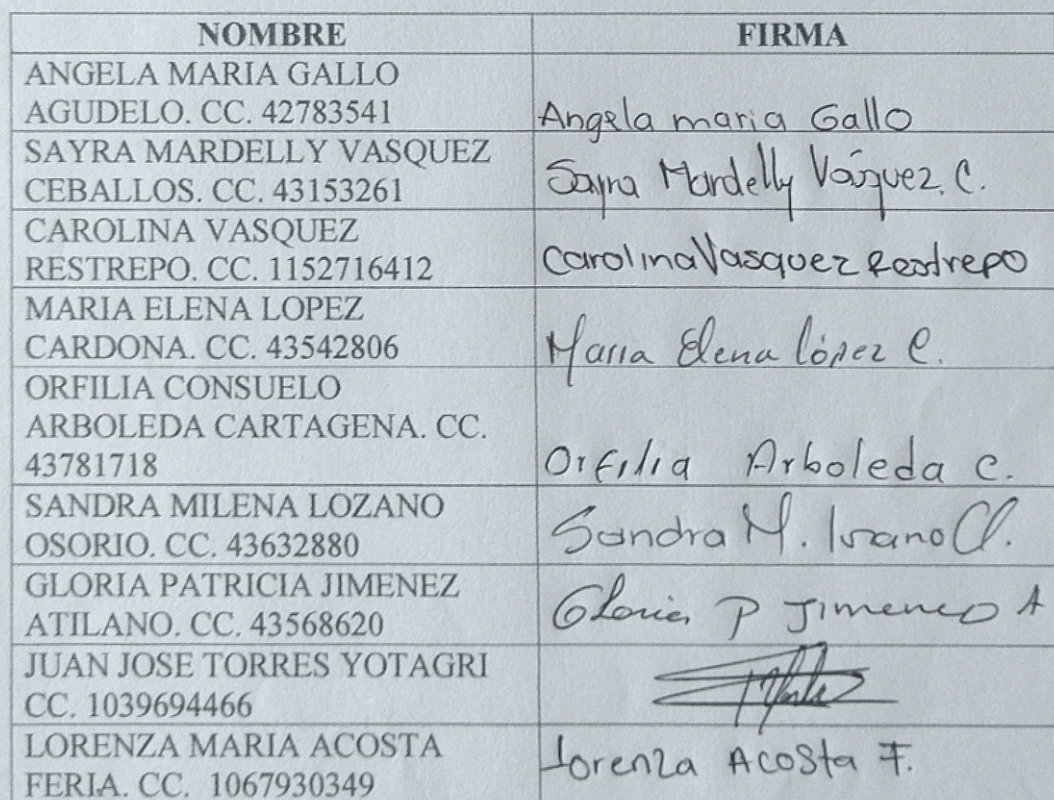 NOMBRE FIRMA
ANGELA MARIA GALLO
AGUDELO. CC. 42783541 Angela maria Gallo
SAYRA MARDELLY VASQUEZ
CEBALLOS. CC. 43153261 Sayra Mardelly Vásquez. C.
CAROLINA VASQUEZ
RESTREPO. CC. 1152716412 Carolina Vasquez Restrepo
MARIA ELENA LOPEZ
CARDONA. CC. 43542806 Maria Elena López C.
ORFILIA CONSUELO
ARBOLEDA CARTAGENA. CC.
43781718 Orfilia Arboleda C.
SANDRA MILENA LOZANO
OSORIO. CC. 43632880 Sandra M.
GLORIA PATRICIA JIMENEZ
ATILANO. CC. 43568620 Gloria P Jimenez A
JUAN JOSE TORRES YOTAGRI
CC. 1039694466
LORENZA MARIA ACOSTA
FERIA. CC. 1067930349 Lorenza Acosta F.